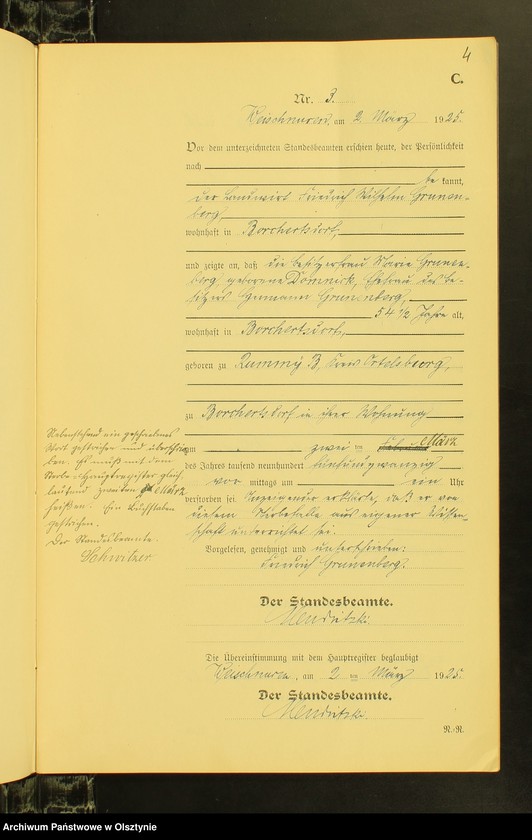 4
C.
Nr. 3.
am 2 März 1925.
Vor dem unterzeichneten Standesbeamten erschien heute, der Persönlichkeit
nach
be kannt,
der Landwirt Friedrich Wilhelm Grunen-
berg,
wohnhaft in Borchertsdorf,
und zeigte an, daß die Besitzerfrau Marie Grunen-
berg geborene Domnick, Ehefrau des Be-
sitzers Hermann Grunenberg,
54 1/2 Jahre alt,
wohnhaft in Borchertsdorf,
geboren zu Rummy B, Kreis Ortelsburg,
zu Borchertsdorf in ihrer Wohnung
am zwei ten März
des Jahres tausend neunhundert fünfundzwanzig
vor mittags um ein Uhr
verstorben sei. Anzeigender erklärte, daß er von
diesem Sterbefalle aus eigener Wissen-
schaft unterrichtet sei.
Vorgelesen, genehmigt und unterschrieben:
Friedrich Grunenberg.
Der Standesbeamte.
Die Übereinstimmung mit dem Hauptregister beglaubigt
am 2 ten März 1925.
Der Standesbeamte.
N.-R.
Nebenstehend ein geschriebenes
Wort gestrichen und
Es muß mit dem
Sterbe-Hauptregister gleich
lautend zweiten März
heißen. Ein Buchstaben
gestrichen.
Der Standesbeamte.
Schwitzer
Archiwum Państwowe w Olsztynie